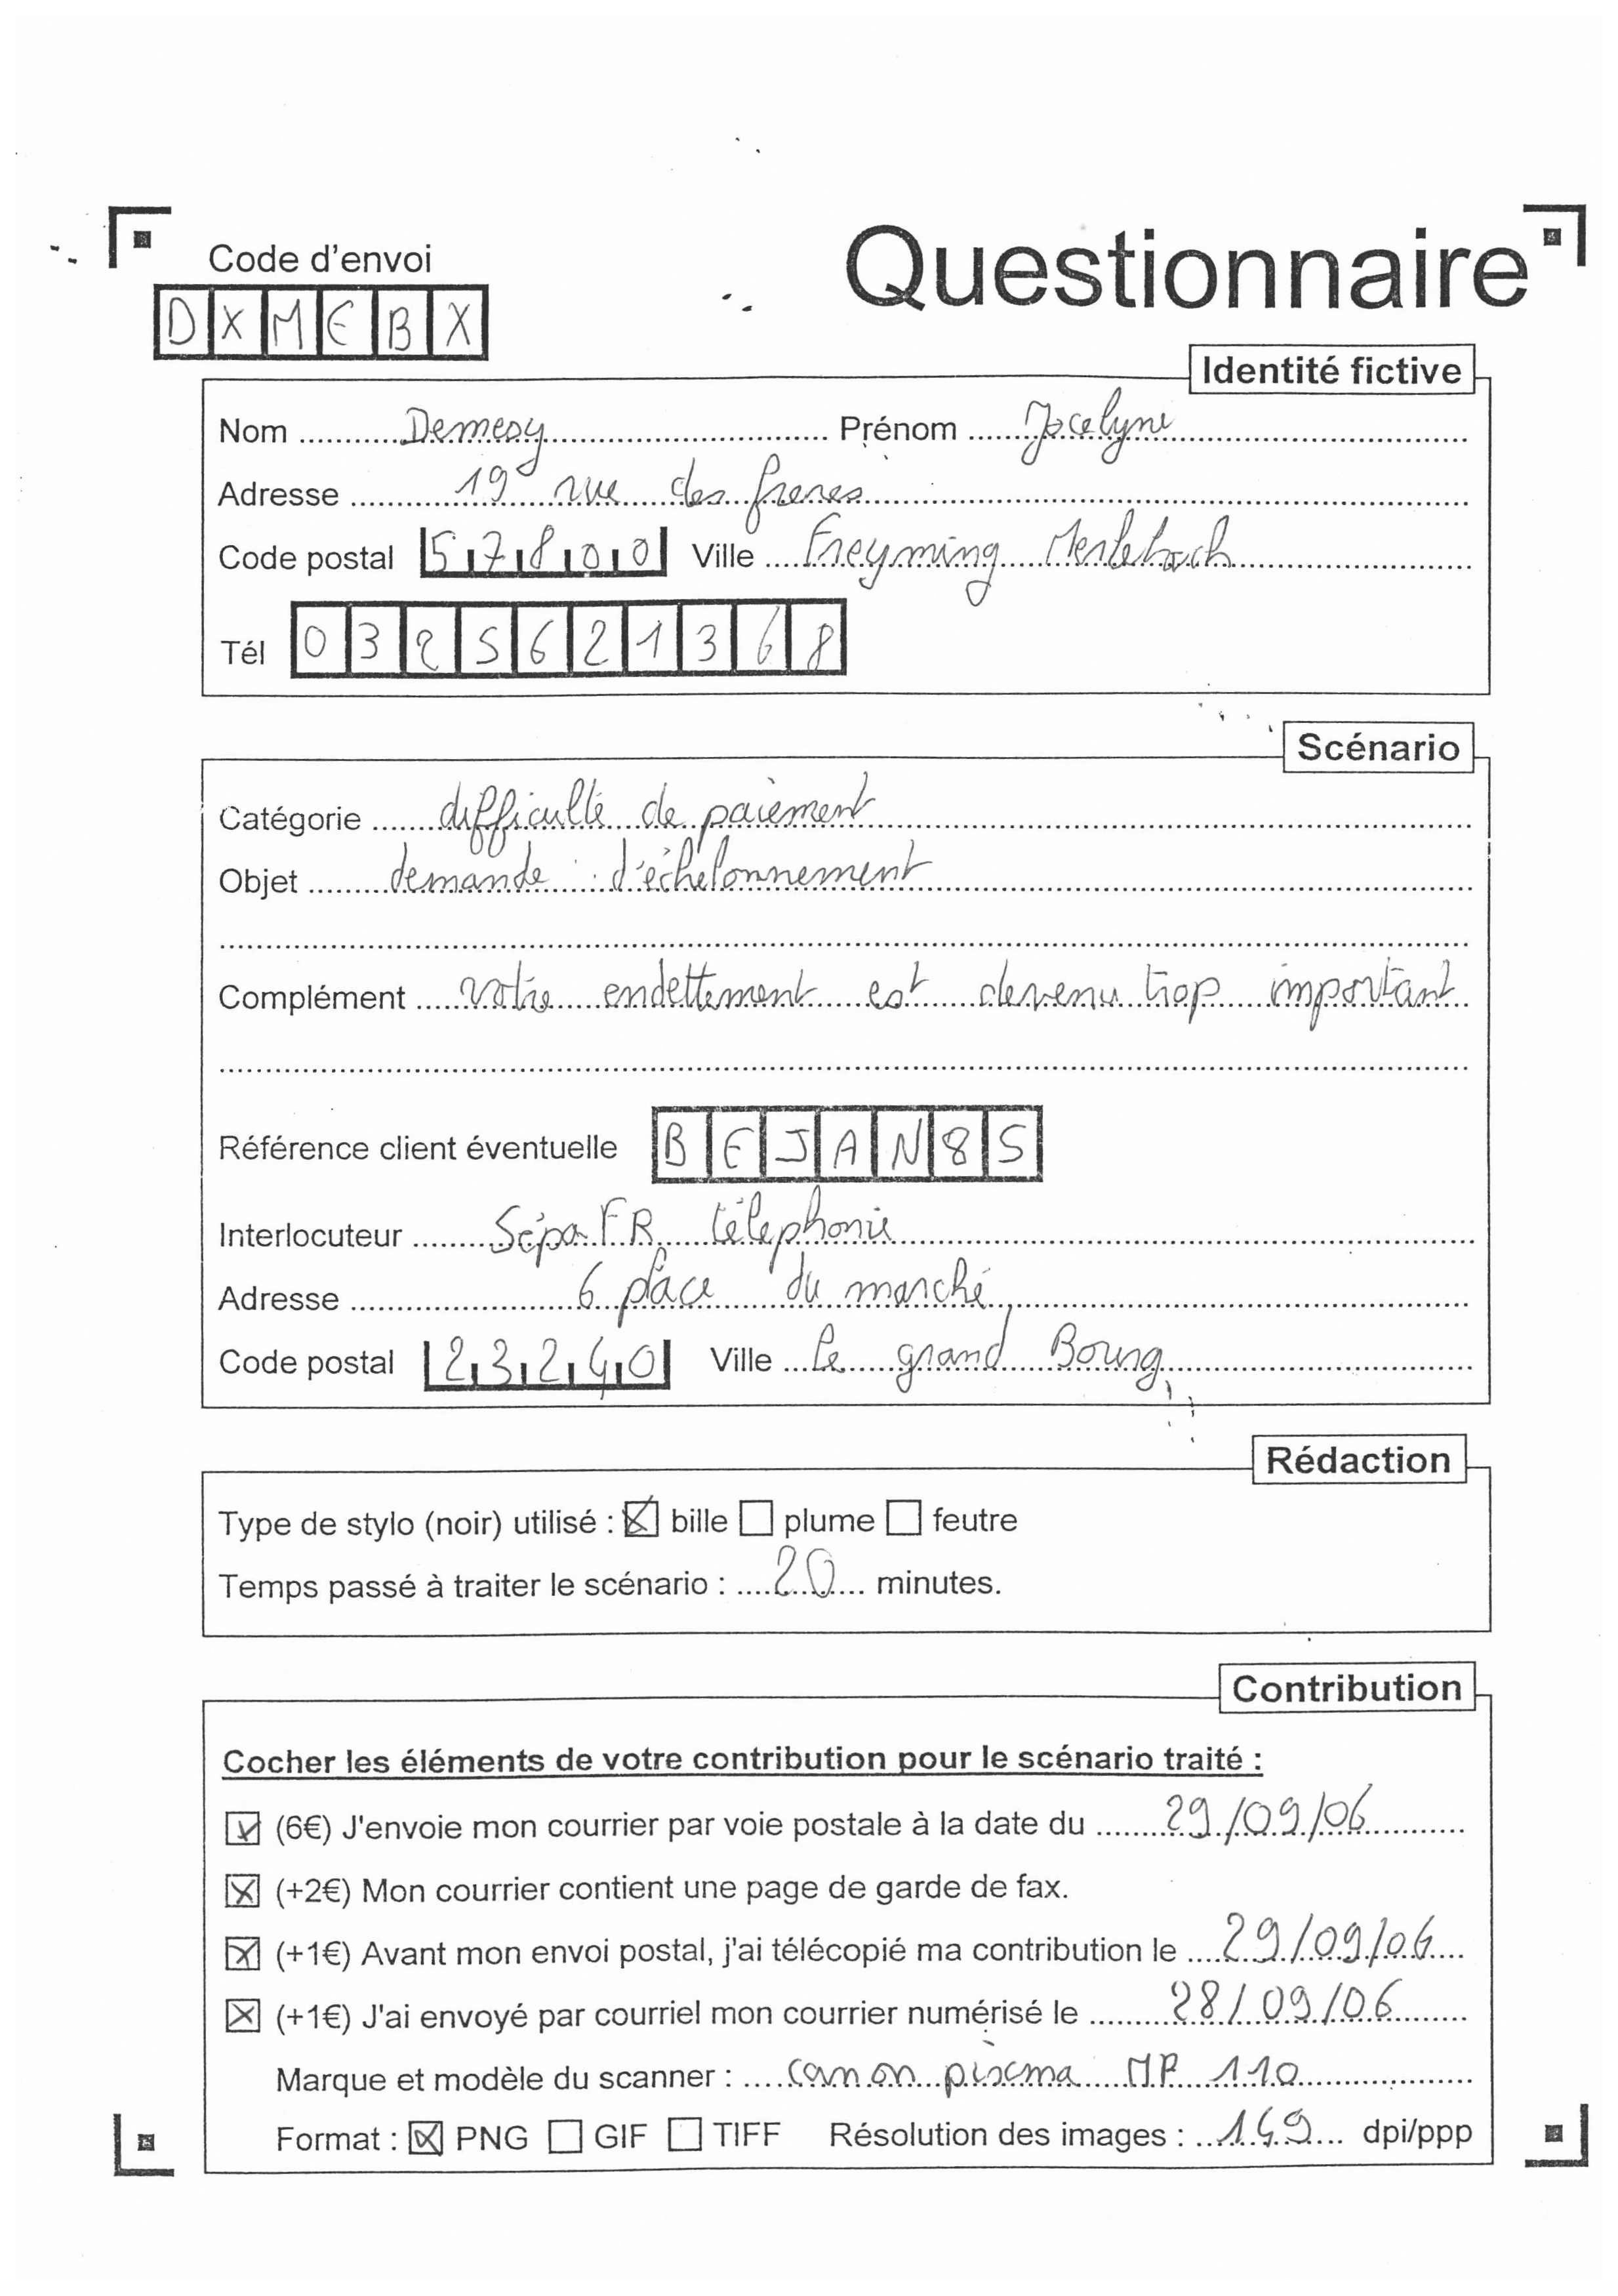 Code d'envoi
Questionnaire
DXMEBX
Identité fictive
Nom Demesy Prénom Jocelyne
Adresse 19 rue des freres
Code postal 57800 Ville Freyming Merlebach
Tél 0325621368
Scénario
Catégorie difficulté de paiement
Objet demande d'échelonnement
Complément votre endettement est devenu trop important
Référence client éventuelle BEJAN85
Interlocuteur SépaFR téléphonie
Adresse 6 place du marché
Code postal 23240 Ville le grand Bourg
Rédaction
Type de stylo (noir) utilisé : ☒ bille ☐ plume ☐ feutre
Temps passé à traiter le scénario : 20 minutes.
Contribution
Cocher les éléments de votre contribution pour le scénario traité :
☒ (6€) J'envoie mon courrier par voie postale à la date du 29/09/06
☒ (+2€) Mon courrier contient une page de garde de fax.
☒ (+1€) Avant mon envoi postal, j'ai télécopié ma contribution le 29/09/06
☒ (+1€) J'ai envoyé par courriel mon courrier numérisé le 28/09/06
Marque et modèle du scanner : canon piscma MP 110
Format : ☒ PNG ☐ GIF ☐ TIFF Résolution des images : 149 dpi/ppp